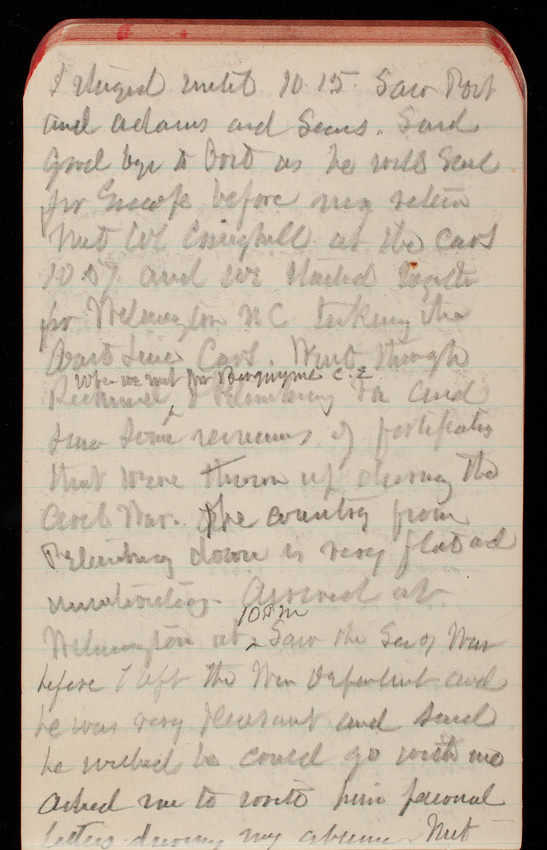 I staged until 10.15. Saw Post
and Adams and Sears. Said
good bye to Post as he will sail
for Europe before my return
Met Col Craighill at the cars
10.57 and we started together
for Wilmington N C taking the
Coast Line Cars. Went through
where we met Mr Burgwyn C. E
Richmond & Petersburg Va and
saw some remains of fortification
that were thrown up during the
Civil War. The country from
Petersburg down is very flat and
uninteresting. Arrived at
10 P M
Wilmington at Saw the Sec of War
before I left the War Department and
he was very pleasant and said
he wished he could go with me
asked me to write him personal
letters during my absence. Met